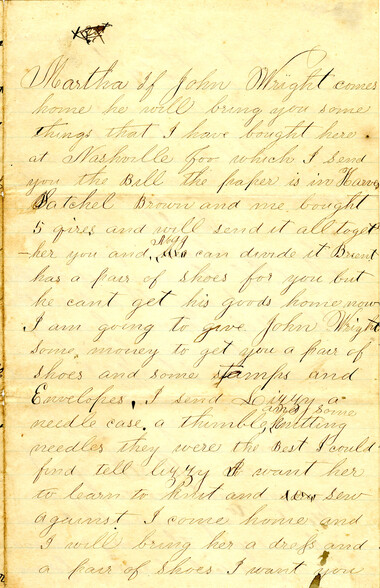 Martha If John Wright comes
home he will bring you some
things that I have bought here
at Nashville Foo which I send
you the Bill the paper is in Harvs
Satchel Brown and me bought
5 qires and will send it all toget
-her you and Mary can divide it Brient
has a pair of shoes for you but
he cant get his goods home now
I am going to give John Wright
some money to get you a pair of
shoes and some stamps and
Envelopes, I send Lizzy a
needle case a thimble and some Knitting
needles they were the Best I could
find tell Lizzy I want her
to learn to knit and sew
against I come home and
I will bring her a dress and
a pair of shoes I want you